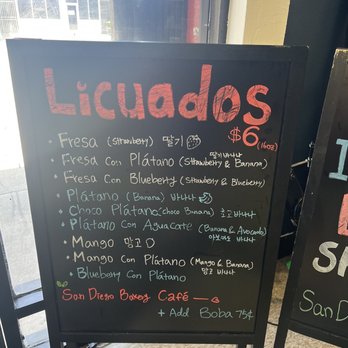 Licuados
$6
(16oz)
• Fresa (Strawberry) 딸기
• Fresa Con Plátano (Strawberry & Banana) 딸기바나나
• Fresa Con Blueberry (Strawberry & Blueberry)
• Plátano (Banana) 바나나
• Choco Plátano (choco Banana) 초코바나나
• Plátono Con Aguacate (Banana & Avocado) 아보카도 바나나
• Mango 망고
• Mango Con Plátano (Mango & Banana) 망고 바나나
• Blueberry Con Plátano
San Diego Boxing Café
+ Add Boba 75¢
San D